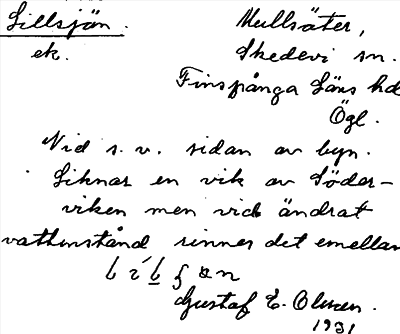 Lillsjön. Mullsäter,
ek. Skedevi sn.
Finspånga Läns hd
Ögl.
Vid s.v. sidan av byn.
Liknar en vik av Söder-
viken men vid ändrat
vattenstånd rinner det emellan
Gustaf E. Olsson.
1931